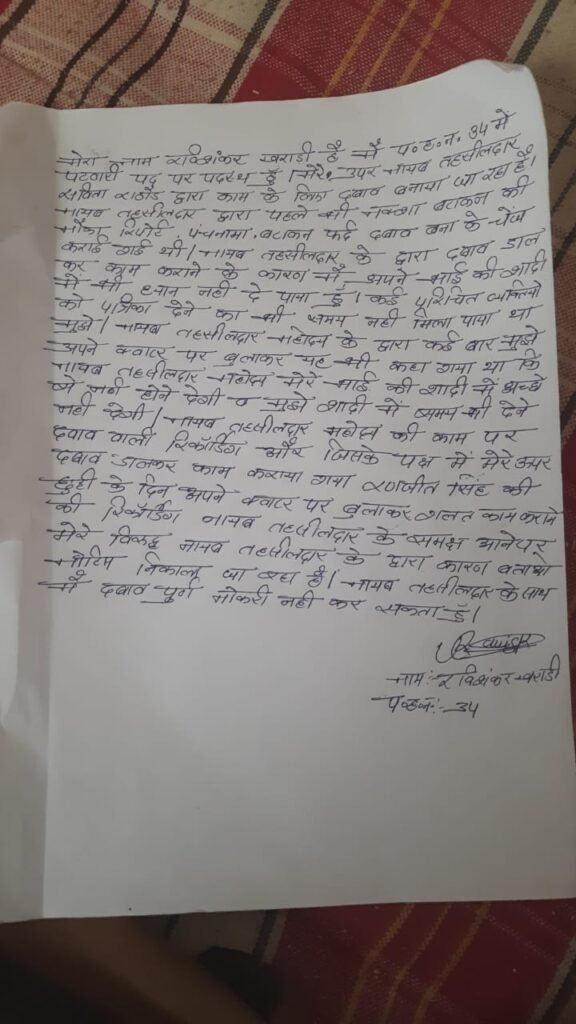 मेरा नाम रविशंकर खराडी है मैं प.ह.न. 34 में
पटवारी पद पर पदस्थ हूँ। मेरे उपर नायब तहसीलदार
सविता राठौड द्वारा काम के लिए दबाव बनाया जा रहा है।
नायब तहसीलदार द्वारा पहले भी नक्शा बटाकन की
मौका रिपोर्ट, पंचनामा, बटाकन फर्द दबाव बना के चेंज
कराई गई थी। नायब तहसीलदार के द्वारा दबाव डाल
कर काम कराने के कारण मैं अपने भाई की शादी
में भी ध्यान नही दे पाया हूँ। कई परिचित व्यक्तियो
को पत्रिका देने का भी समय नही मिल पाया था
मुझे। नायब तहसीलदार महोदय के द्वारा कई बार मुझे
अपने क्वाटर पर बुलाकर यह भी कहा गया था कि
नायब तहसीलदार महोदय मेरे भाई की शादी में अच्छे
से नही होने देगी व मुझे शादी में समय भी देने
नही देगी। नायब तहसीलदार महोदय की काम पर
दबाव वाली रिकॉर्डिंग और जिसके पक्ष में मेरे उपर
दबाव डालकर काम कराया गया रणजीत सिंह की
छुट्टी के दिन अपने क्वाटर पर बुलाकर गलत काम कराने
की रिकॉर्डिंग नायब तहसीलदार के समक्ष आनेपर
मेरे विरूद्ध नायब तहसीलदार के द्वारा कारण बताओ
नोटिस निकाला जा रहा है। नायब तहसीलदार के साथ
मैं दबाव पुर्ण नोकरी नही कर सकता हूँ।
नाम:- रविशंकर खराडी
प.ह.न.:- 34